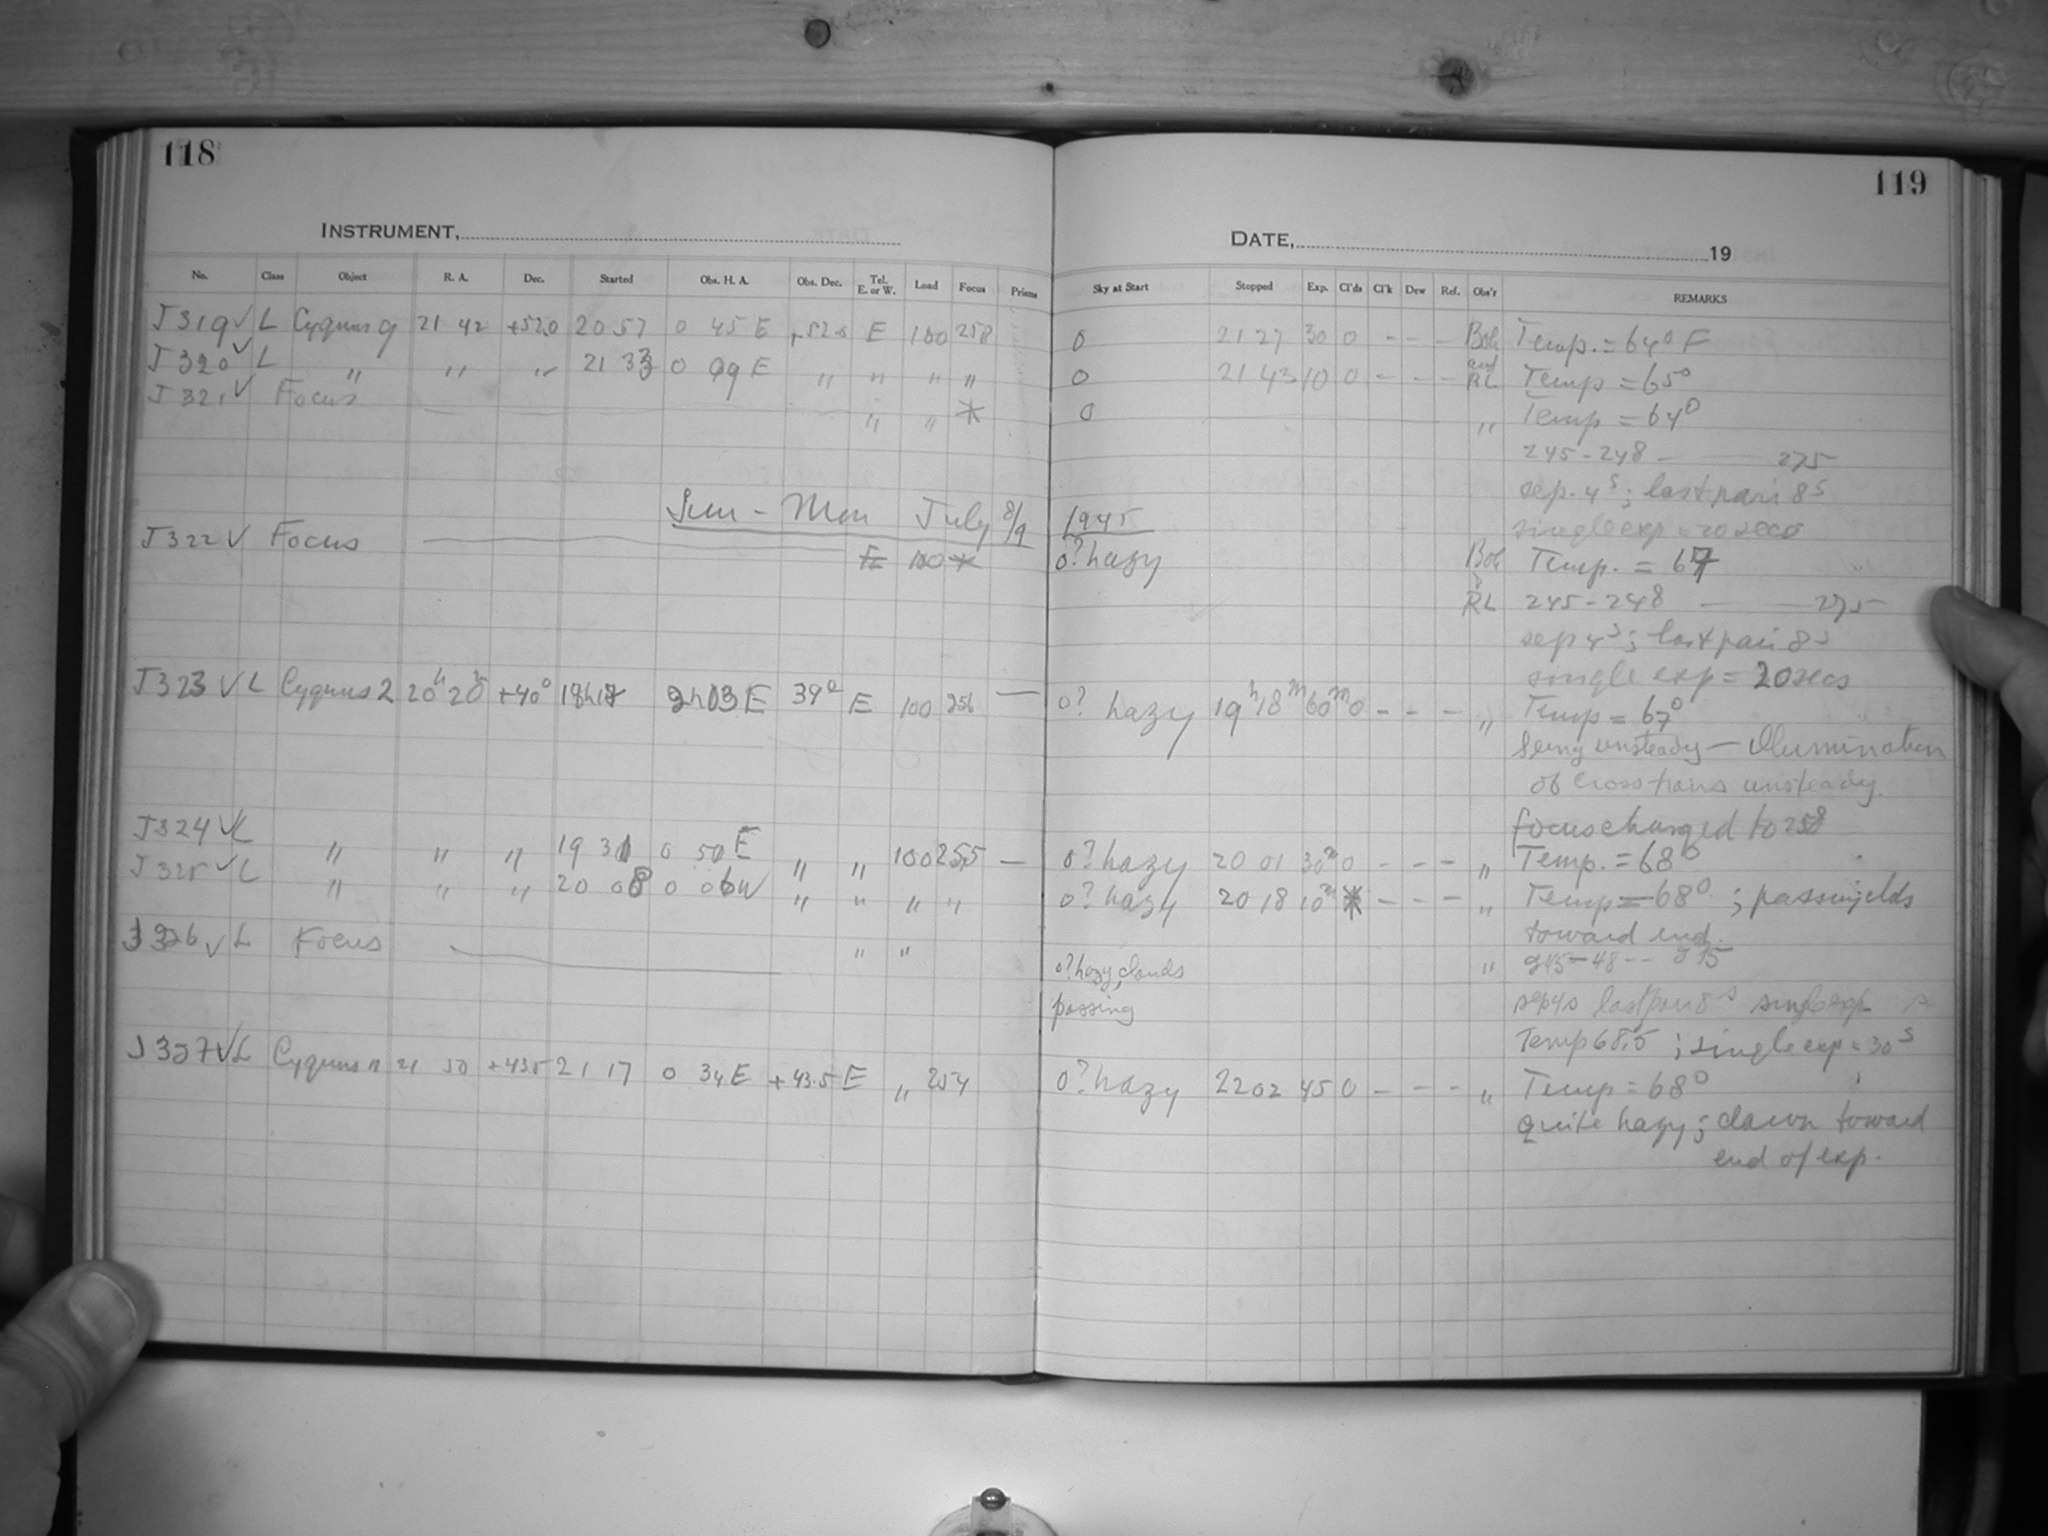 118
119
INSTRUMENT,
DATE, 19
No. Class Object R. A. Dec. Started Obs. H. A. Obs. Dec. Tel. E. or W. Load Focus Prisms Sky at Start Stopped Exp. Cl'ds Cl'k Dew Ref. Obs'r REMARKS
J319 √ L Cygnus 9 21 42 +52.0 20 57 0 45 E +52.0 E 100 258 0 21 27 30 0 - - - Bok Temp. = 64° F
J320 √ L " " " 21 33 0 09 E " " " " 0 21 43 10 0 - - - and RL Temp = 65°
J321 √ Focus " " * 0 " Temp = 64°
245 - 248 — 275
sep. 4s; last pair 8s
single exp = 20 secs
Sun - Mon July 8/9 1945
J322 √ Focus E 100 * 0? hazy Bok Temp. = 67
RL 245 - 248 — 275
sep 4s; last pair 8s
single exp = 20 secs
J323 √ L Cygnus 2 20h 20 +40° 18h18 2h03 E 39° E 100 256 — 0? hazy 19h 18m 60m 0 - - - " Temp = 67°
Seeing unsteady — Illumination
of cross hairs unsteady.
focus changed to 258
J324 √ L " " " 19 31 0 50 E " " 100 255 — 0? hazy 20 01 30m 0 - - - " Temp. = 68°
J325 √ L " " " 20 08 0 06 W " " " " 0? hazy 20 18 10m * - - - " Temp = 68°; passing clds
toward end.
J326 √ L Focus " " 0? hazy, clouds " 245 - 48 -- 275
passing sep 4s last pair 8s single exp
Temp 68.5; single exp = 30s
J327 √ L Cygnus 11 21 50 +43.5 21 17 0 34 E +43.5 E " 254 0? hazy 22 02 45 0 - - - " Temp = 68°
quite hazy; dawn toward
end of exp.